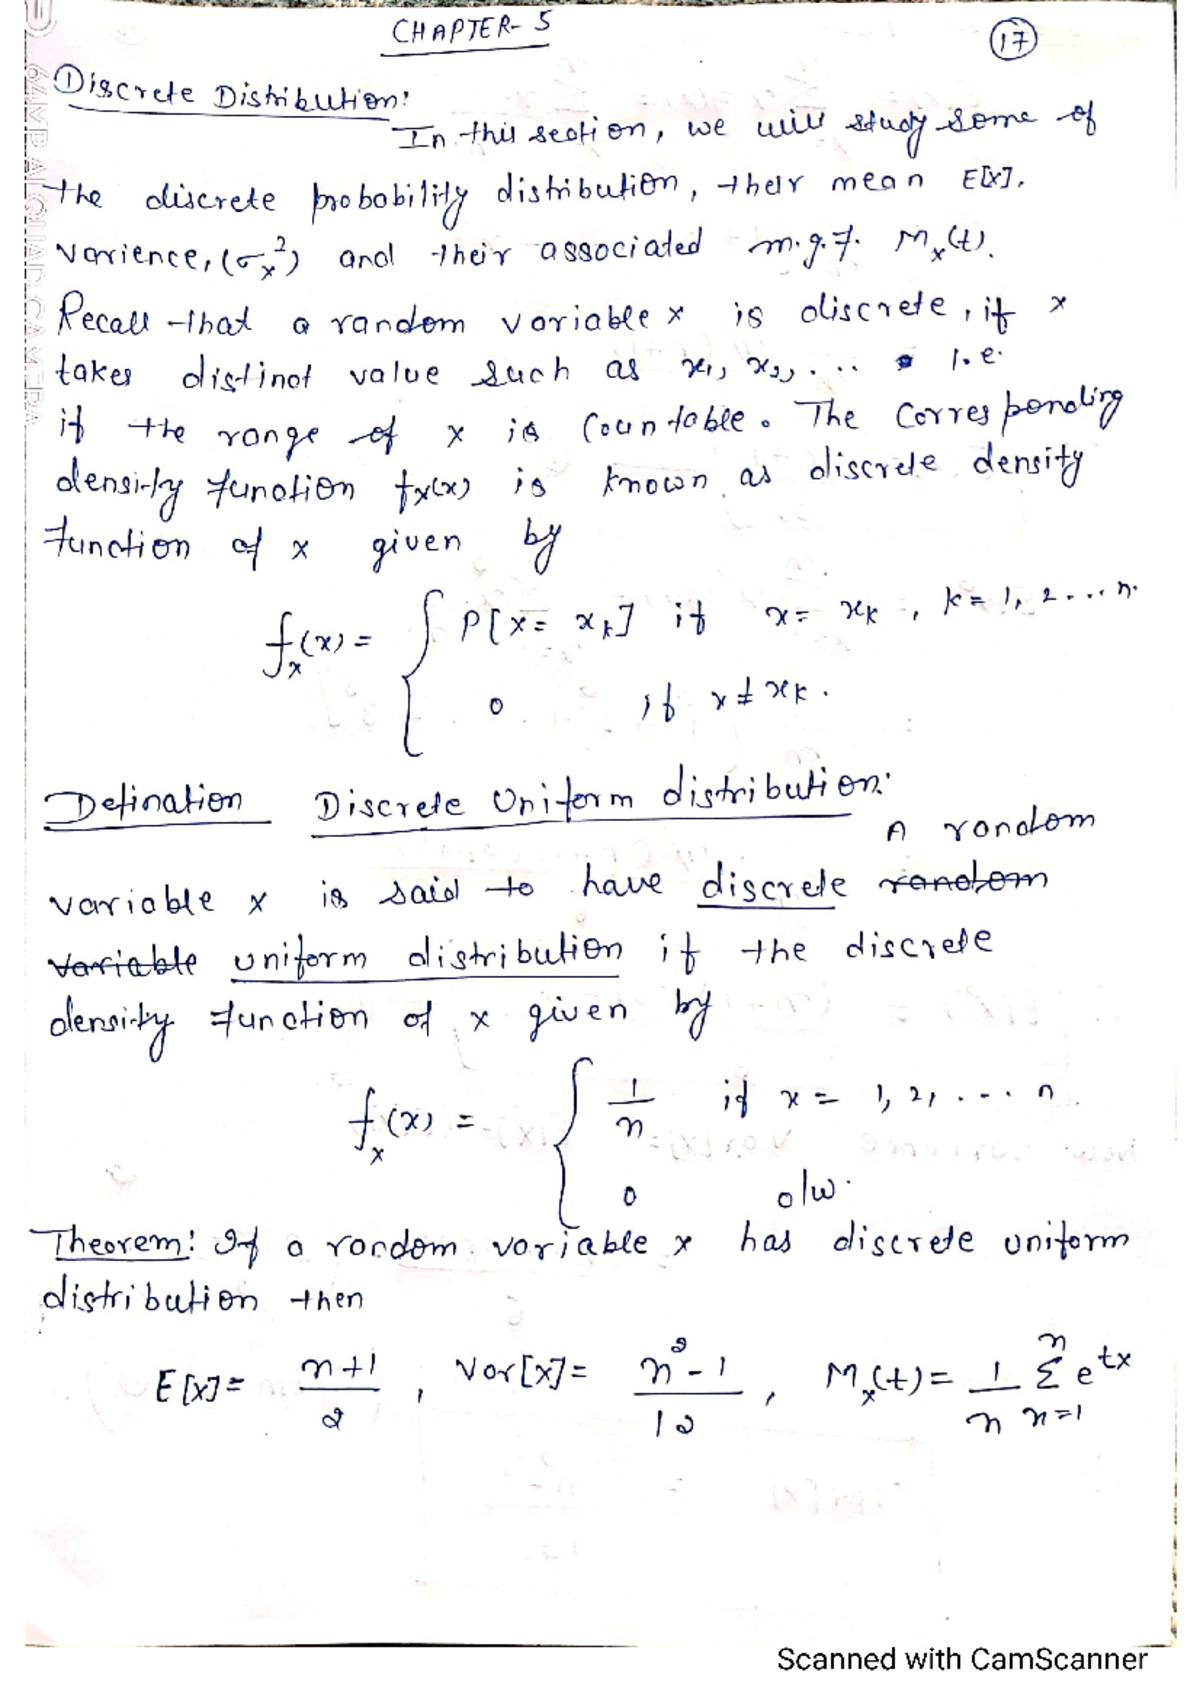 CHAPTER- 5
17
Discrete Distribution:
In this section, we will study some of
the discrete probobility distribution, their mean E[X].
varience, (σₓ²) and their associated m.g.f. Mₓ(t).
Recall that a random variable x is discrete, if x
takes distinct value such as x₁, x₂, ... i.e.
if the range of x is Countable. The Corresponding
density function fₓ(x) is known as discrete density
function of x given by
fₓ(x) = { P[x = xₖ] if x = xₖ, k = 1, 2 ... n.
0 , if x ≠ xₖ.
Defination Discrete Uniform distribution:
A random
variable x is said to have discrete ~~random~~
~~variable~~ uniform distribution if the discrete
density function of x given by
fₓ(x) = { 1/n if x = 1, 2, ... n.
0 o/w.
Theorem: If a random variable x has discrete uniform
distribution then
E[x] = n+1/2 , Var[x] = n²-1/12 , Mₓ(t) = 1/n Σⁿₙ₌₁ e^tx
64MP AI QUAD CAMERA
Scanned with CamScanner